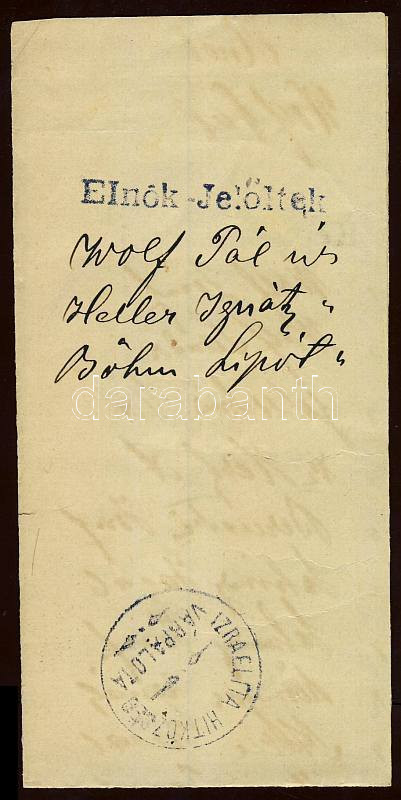 Elnök-Jelöltek
Wolf Pál úr
Heller Ignátz "
Böhm Lipót "
darabanth
IZRAELITA HITKÖZSÉG
VÁRPALOTA